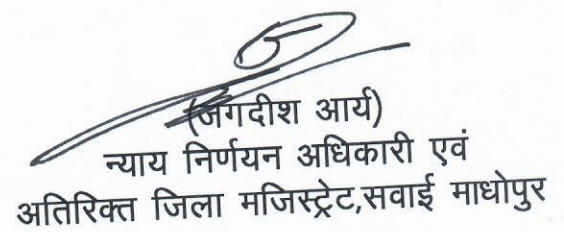 (जगदीश आर्य)
न्याय निर्णयन अधिकारी एवं
अतिरिक्त जिला मजिस्ट्रेट,सवाई माधोपुर